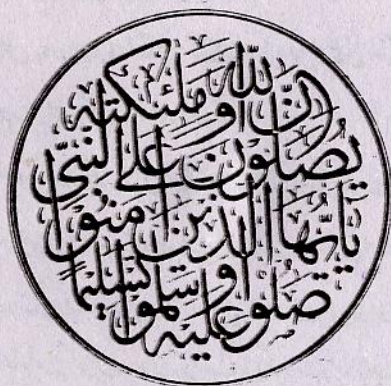 إن الله وملئكته
يصلون على النبي
يأيها الذين امنوا
صلوا عليه وسلموا تسليما